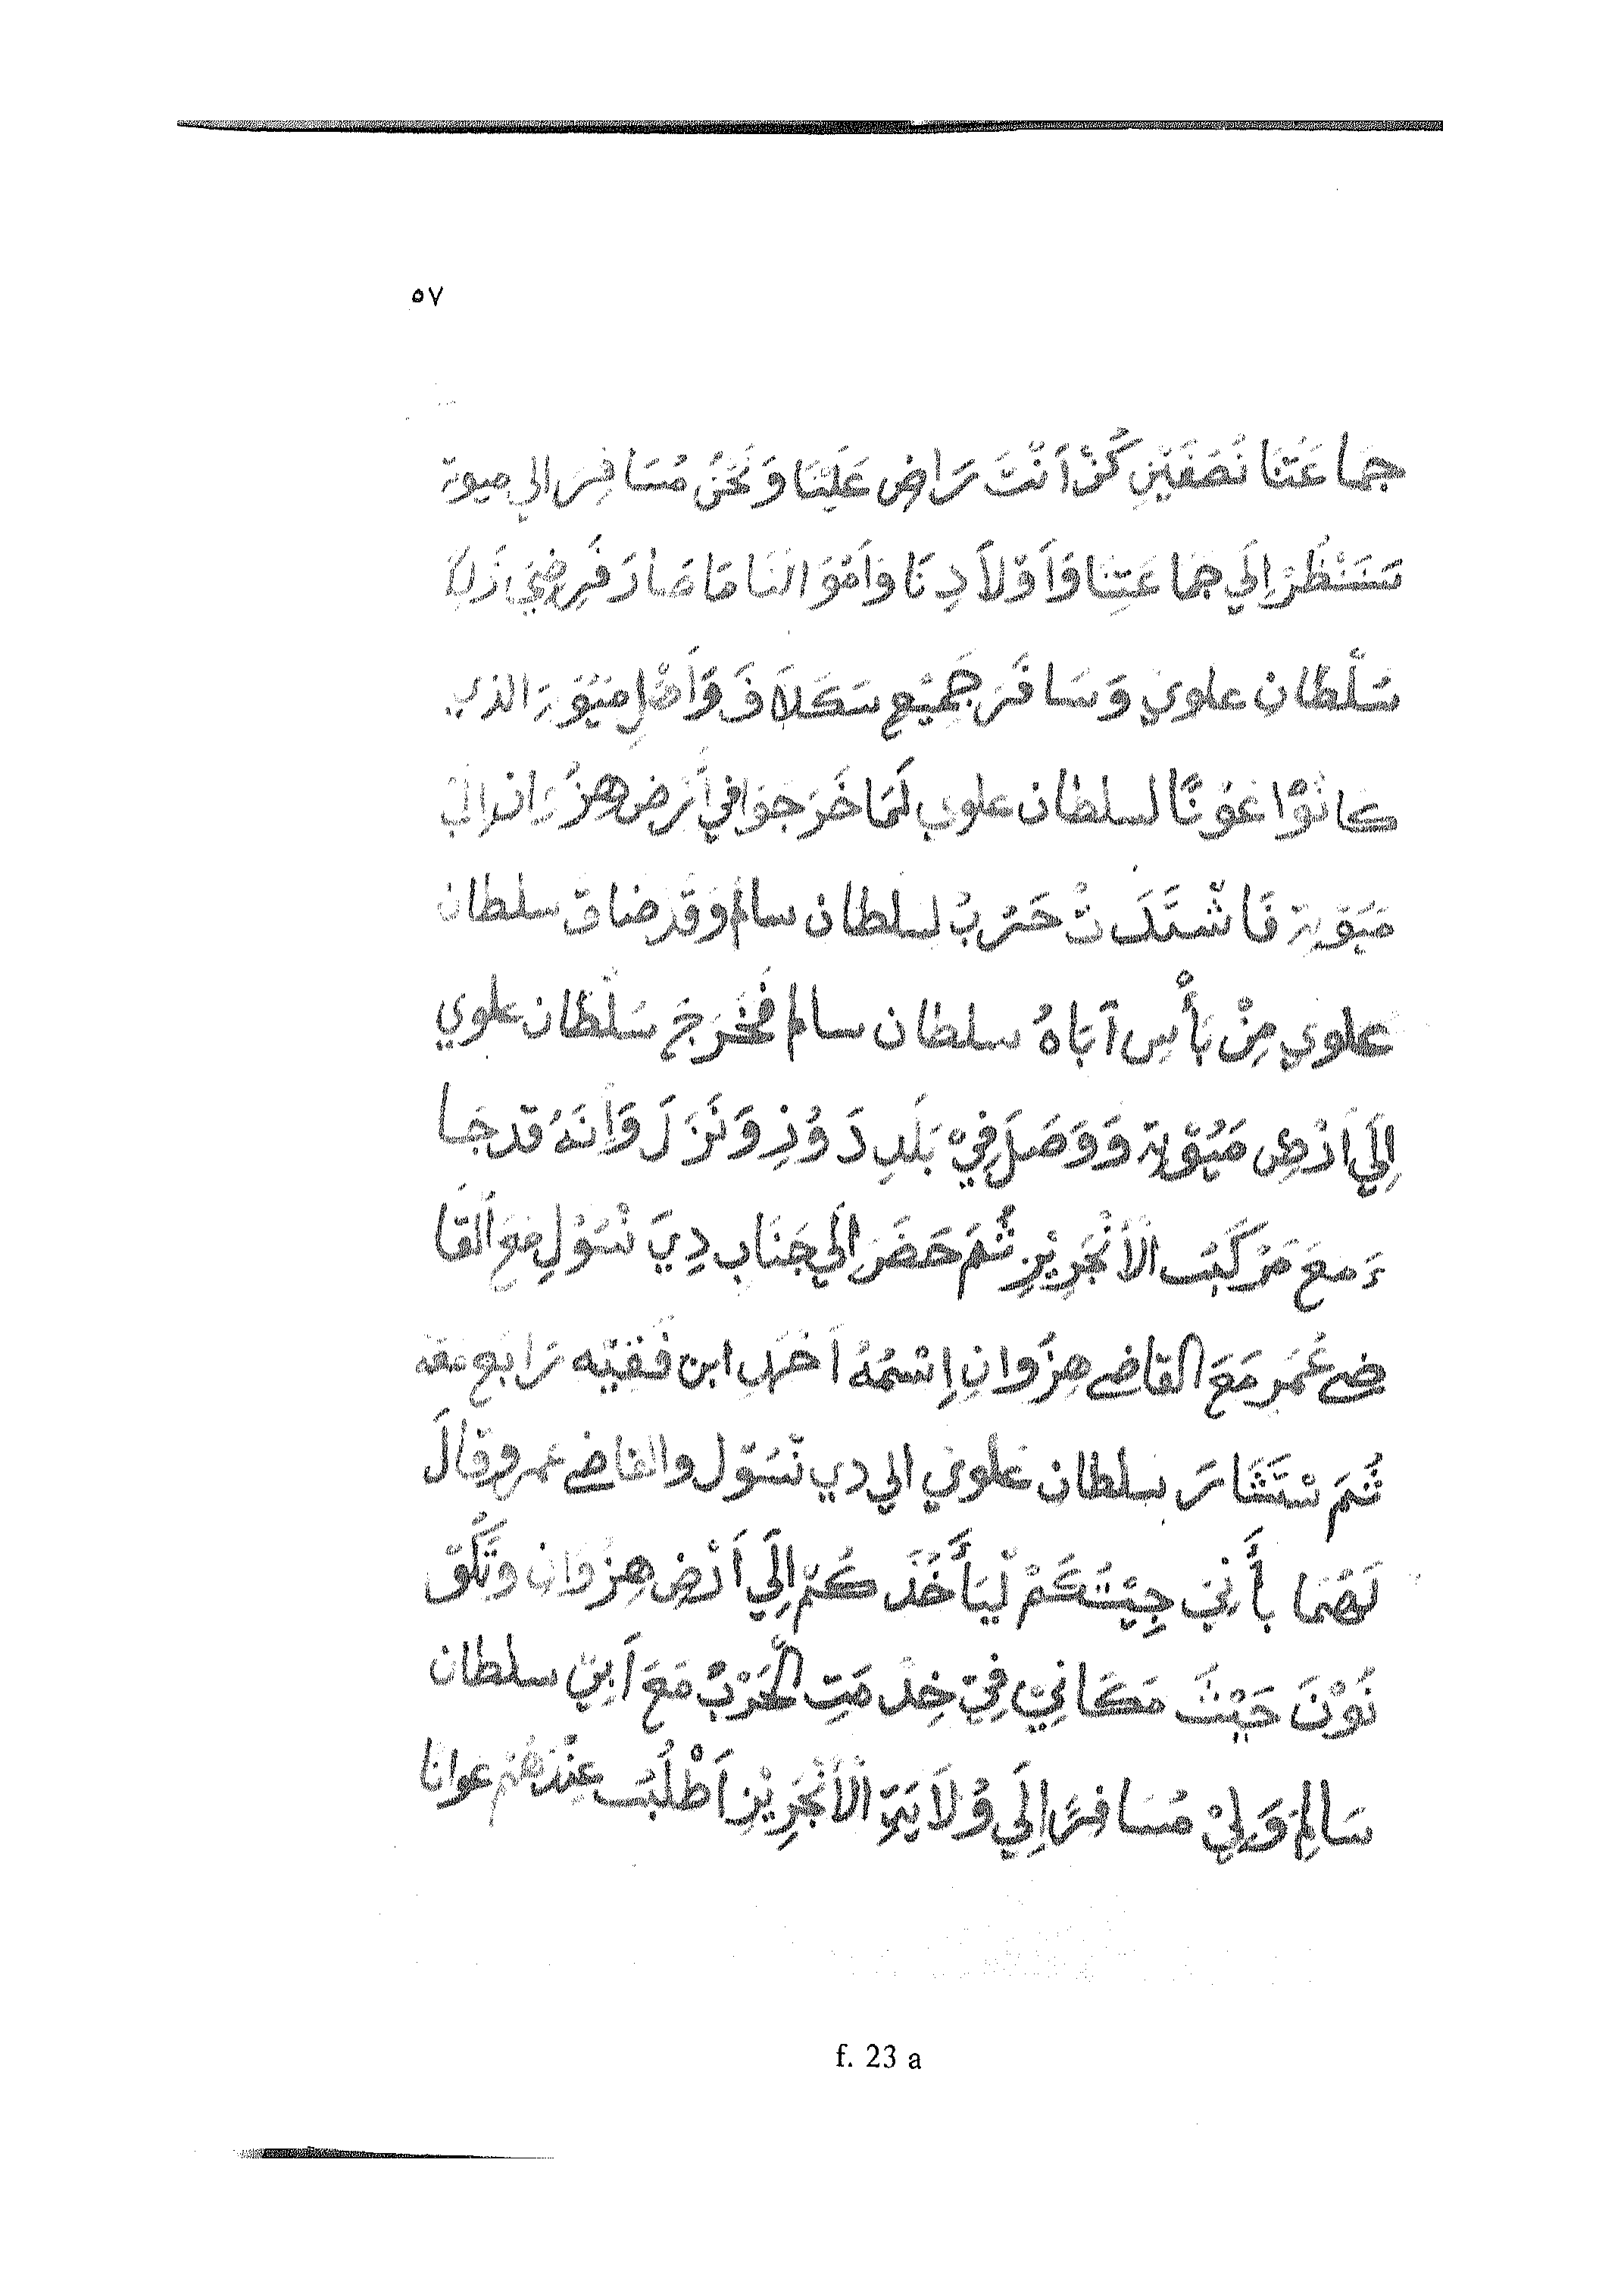 ٥٧
جَمَاعَتَنَا نَصَفَيْنِ كُنْ أَنْتَ رَاضٍ عَلَيْنَا وَنَحْنُ مُسَافِرَ الي ميوة
سَنَنْظُرْ اِلَي جَمَاعَتِنَا وَأَوْلَادِنَا وَأَمْوَالنَا مَا صَارَ فَرِضِيَ
سُلْطَان علوي وَسَافَرَ جَمِيْع سَكَلَافَ وَأَهْلِ مَيُوْةَ الذي
كَانُوْا عَوْنًا لسلطان علوي لَمَا خَرَجَوا في أَرْض هِنْزُوَان اِلَيْ
مَيَوْية فَاشْتَدَّتْ حَرْبُ لسلطان سالم وقَدْ ضاق سلطان
علوي مِنْ بَأْس آبَاهُ سلطان سالم فَخَرَجَ سُلْطَان علوي
اِلَي اَرْضِ مَيُوْية وَوَصَلَ فِيْ بَلَدِ دَوُذِ وَنَزَلَ وَاَنَهُ قدجَا
ءَ مَعَ مَرْكَبَ الْأَنْجَرِيْزِ ثُمَّ حَضَرَ اِلَي جَنَابِ دِيَ نْسَوْلِ مَعَ الْقَا
ضي عُمَر مَعَ القاضي هِنْزُوان اِسْمُهُ اَحْمَد ابن فَقِيْه رَابع مَعَهُ
ثُمَ سْتَشَارَ سلطان عَلَوي الي دي نْسَوْل والقاضي عمر وقَالَ
لَهُمَا بِأَنِي جِيْتُكُمْ لِيَأَخُذَكُمْ اِلَي اَرْض هِنْزُوَان وتَكُوْ
نَوْنَ حَيْثَ مَكَانِيْ فِيْ خِدْمَتِ الْحَرْبُ مَعَ اَبِيْ سلطان
سَالِمْ وَلِيْ مُسَافِرًا اِلَي وُلَايَةِ الْأَنْجَرِيْزِ اَطْلُبَ عِنْدَهُمْ عوانا
f. 23 a